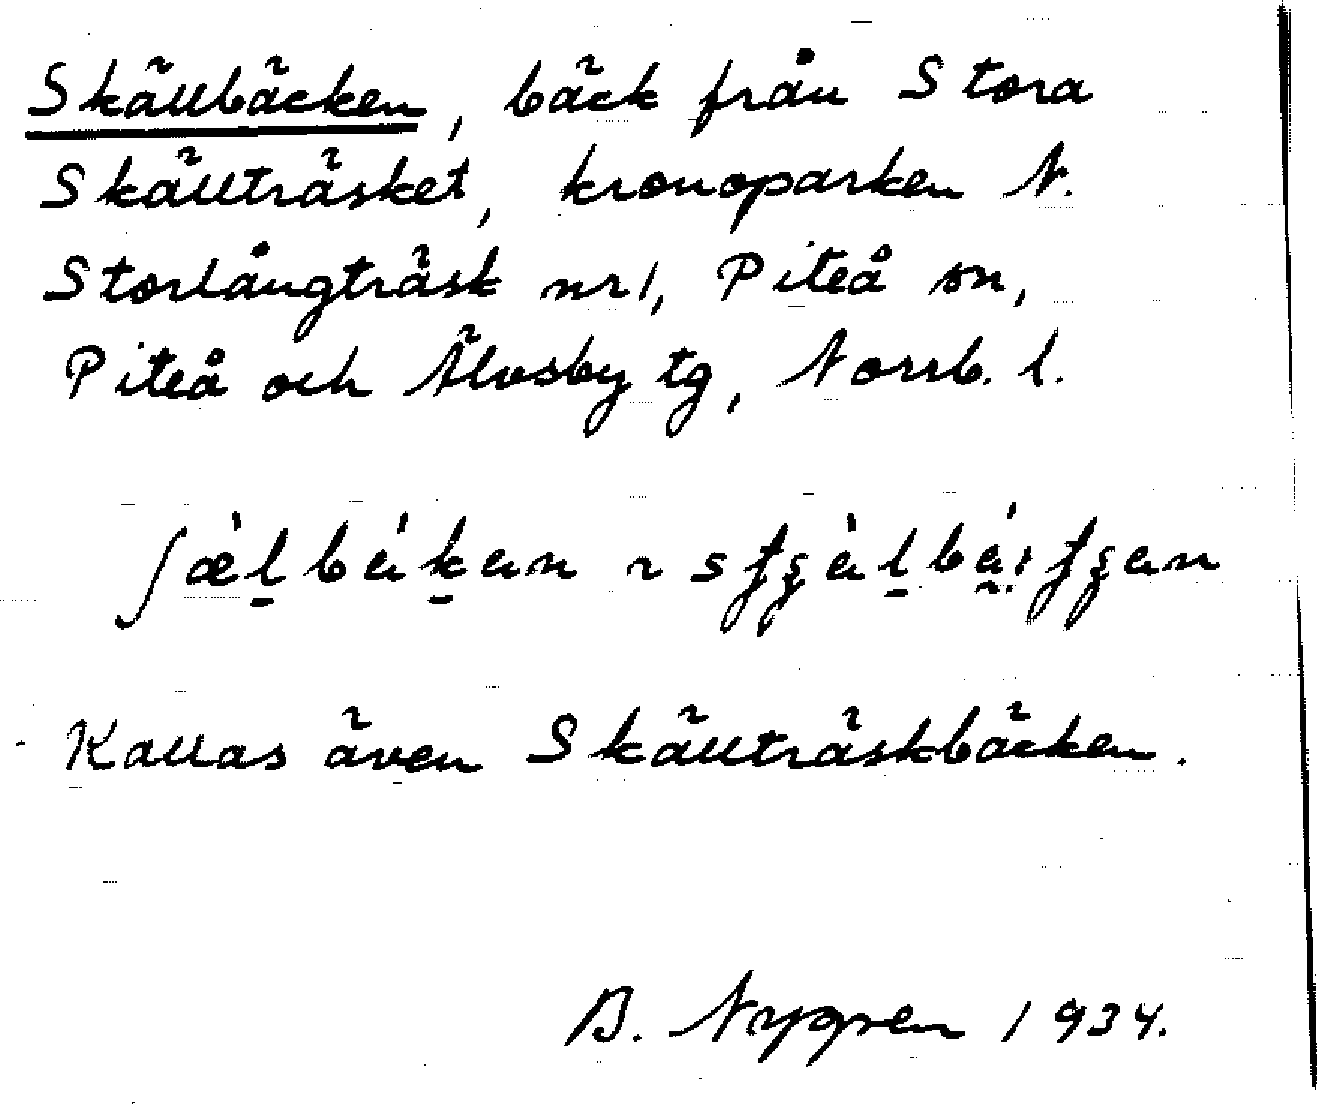 Skällbäcken, bäck från Stora
Skällträsket, kronoparken N.
Storlångträsk nr 1, Piteå sn,
Piteå och Älvsby tg, Norrb. l.
Kallas även Skällträskbäcken.
B. Nygren 1934.